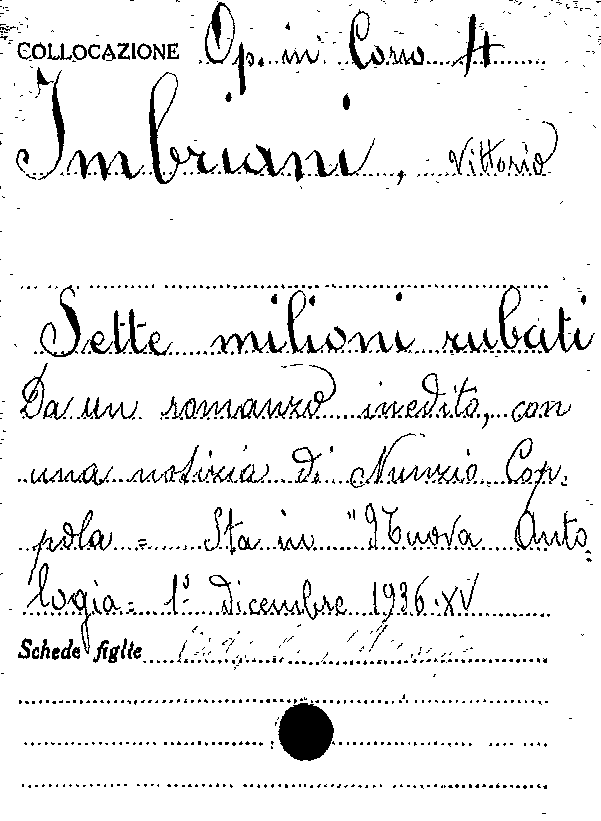 COLLOCAZIONE Op. in Corso 4
Imbriani, Vittorio
Sette milioni rubati
Da un romanzo inedito, con
una notizia di Nunzio Cop-
pola = Sta in "Nuova Anto-
logia= 1º dicembre 1936.XV
Schede figlie